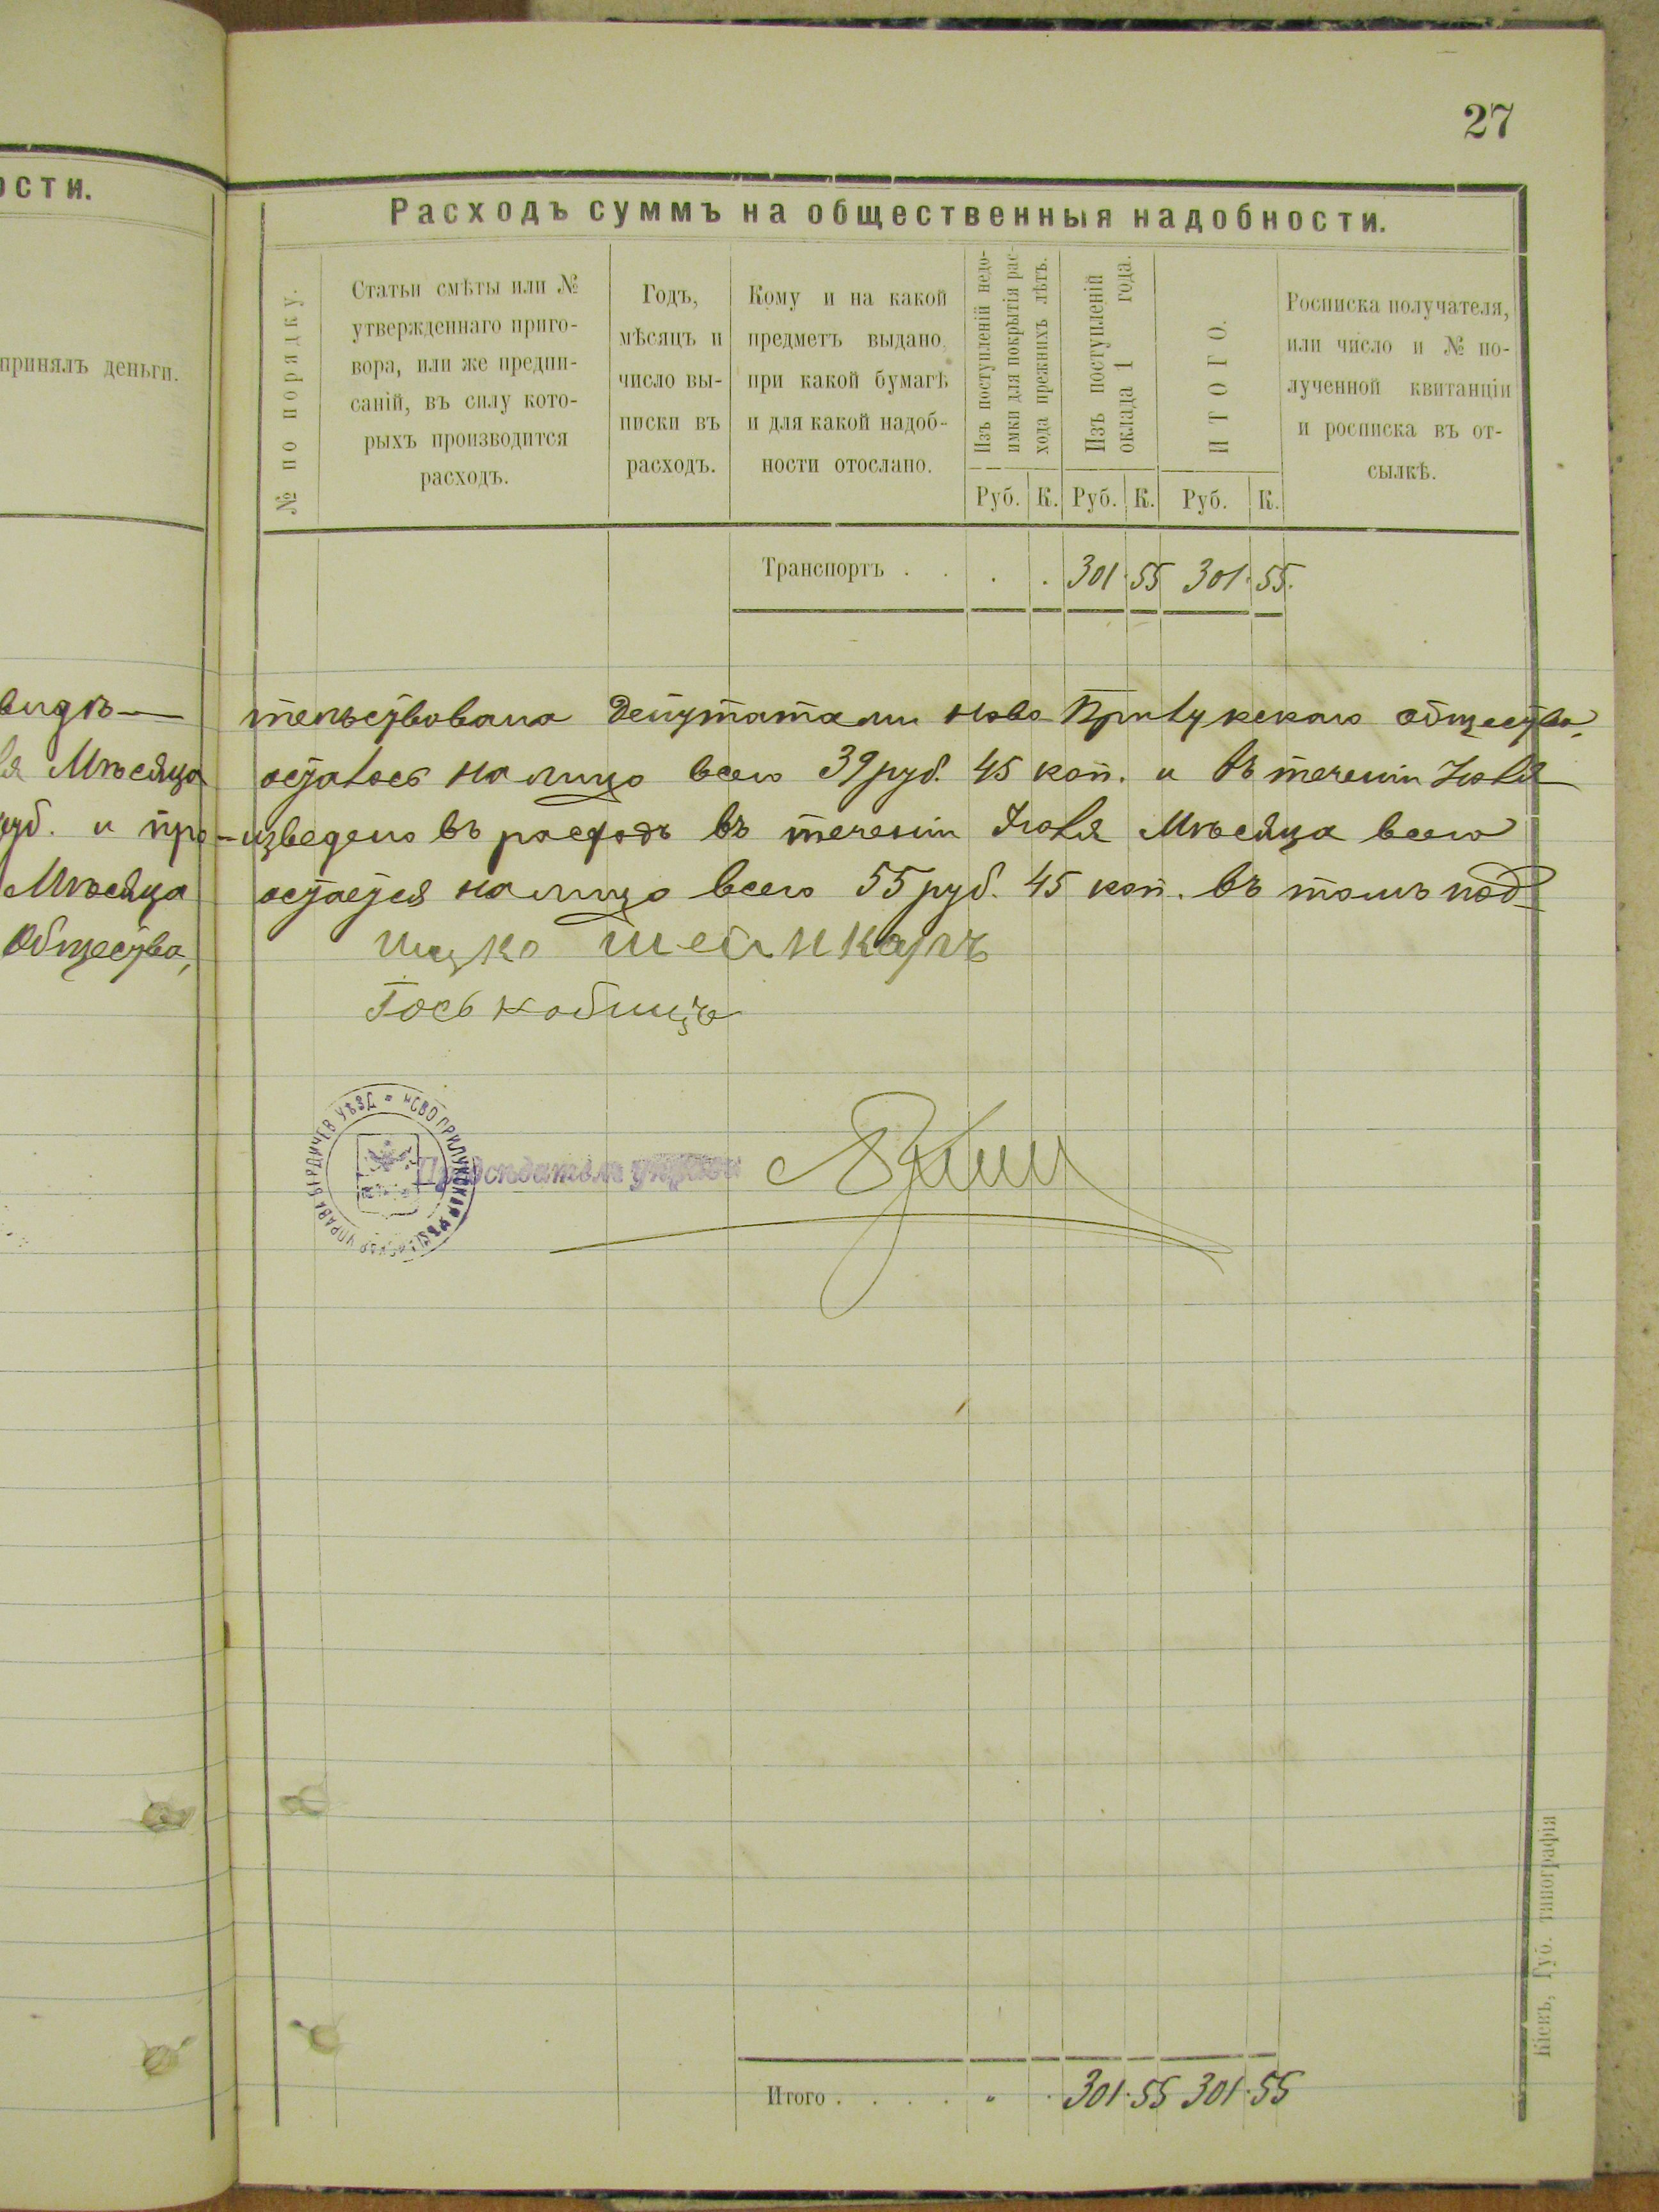 27
ости.
принялъ деньги.
Расходъ суммъ на общественныя надобности.
№ по порядку.
Статьи смѣты или №
утвержденнаго приго-
вора, или же предпи-
саній, въ силу кото-
рыхъ производится
расходъ.
Годъ,
мѣсяцъ и
число вы-
писки въ
расходъ.
Кому и на какой
предметъ выдано,
при какой бумагѣ
и для какой надоб-
ности отослано.
Изъ поступленій недо-
имки для покрытія рас-
хода прежнихъ лѣтъ.
Изъ поступленій
оклада 1 года.
ИТОГО.
Росписка получателя,
или число и № по-
лученной квитанціи
и росписка въ от-
сылкѣ.
Руб. К. Руб. К. Руб. К.
Транспортъ . . . . 301. 55 301. 55.
видѣ— тельствована Депутатами Ново Прилукскаго общества,
ля Мѣсяца осталось на лицо всего 39 руб. 45 коп. и въ теченіи Іюля
руб. и про-изведено въ расходъ въ теченіи Іюля Мѣсяца всего
Мѣсяца остается на лицо всего 55 руб. 45 коп. въ томъ под-
Общества,
Ицко Шейнкарь
УПРАВА БЕРДИЧЕВ УѢЗД * НОВОПРИЛУКСКАЯ
Предсѣдатель управы
Итого . . . . " . 301. 55 301. 55
Кіевъ, Губ. типографія